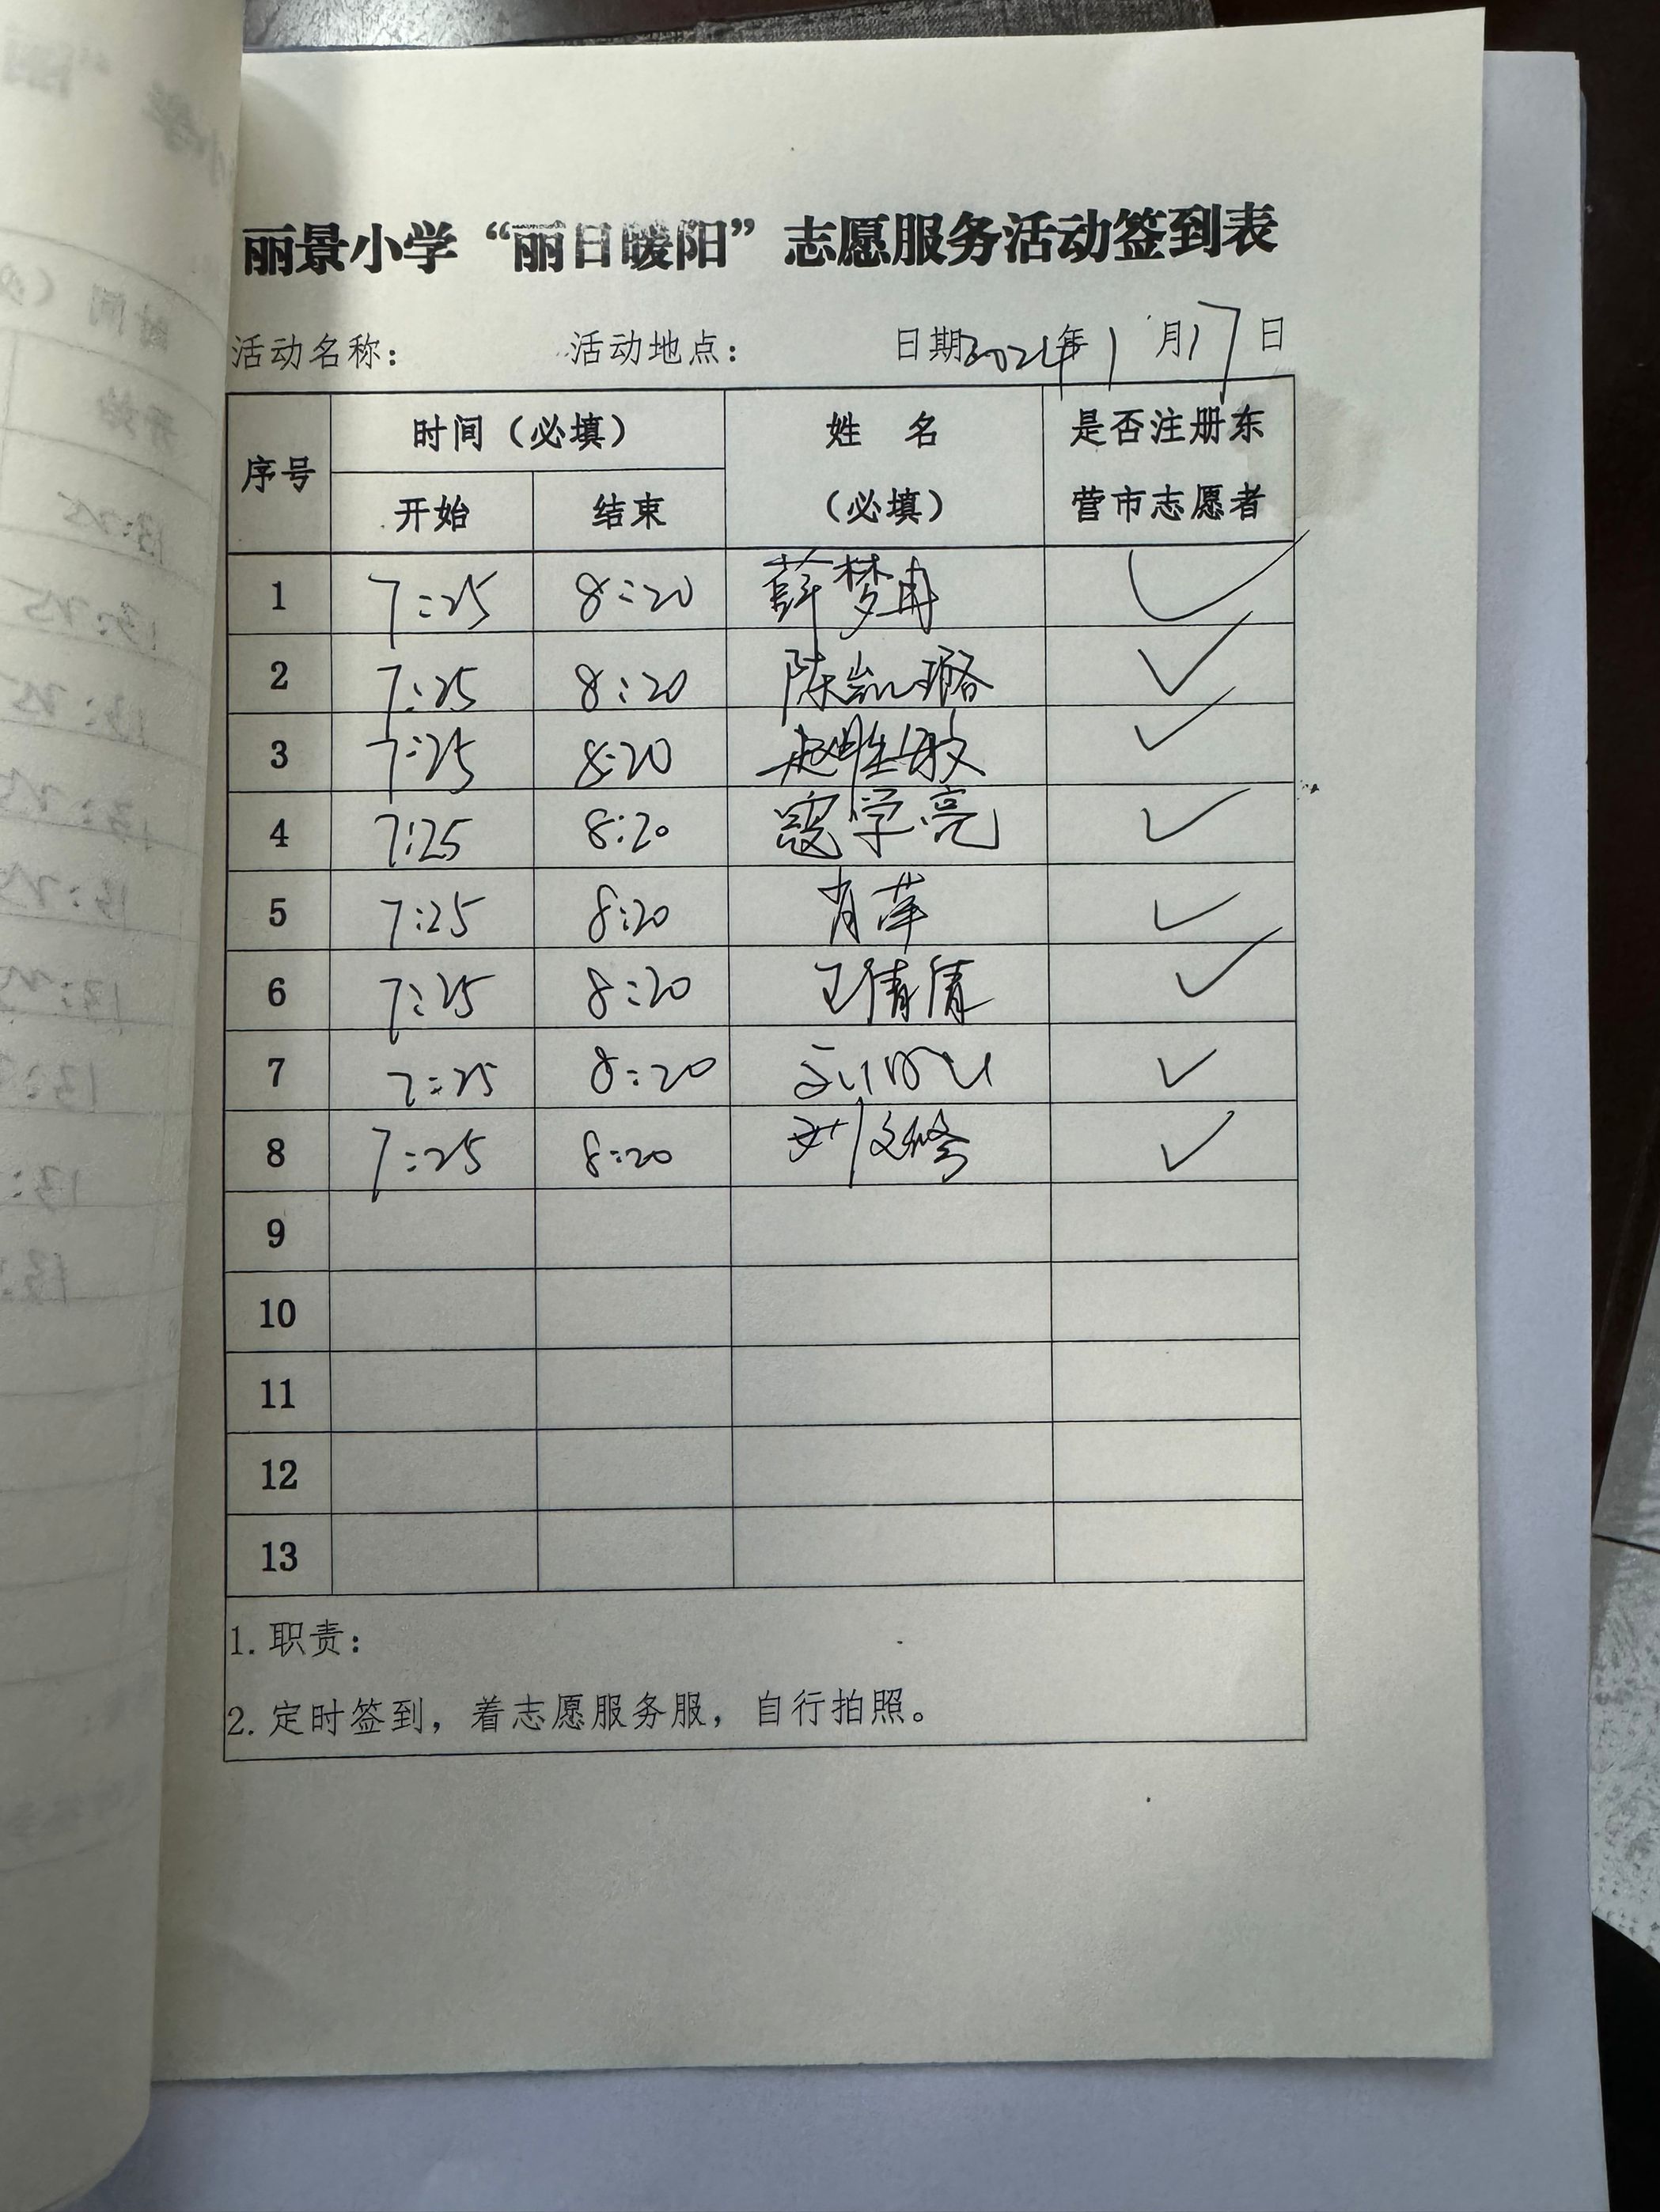 丽景小学“丽日暖阳”志愿服务活动签到表
活动名称： 活动地点： 日期2024年1月17日
序号 时间（必填） 姓 名（必填） 是否注册东营市志愿者
开始 结束
1 7:25 8:20 薛梦冉 ✓
2 7:25 8:20 陈凯璐 ✓
3 7:25 8:20 赵胜敏 ✓
4 7:25 8:20 寇学亮 ✓
5 7:25 8:20 肖萍 ✓
6 7:25 8:20 王倩倩 ✓
7 7:25 8:20 ✓
8 7:25 8:20 刘文修 ✓
9
10
11
12
13
1. 职责：
2. 定时签到，着志愿服务服，自行拍照。